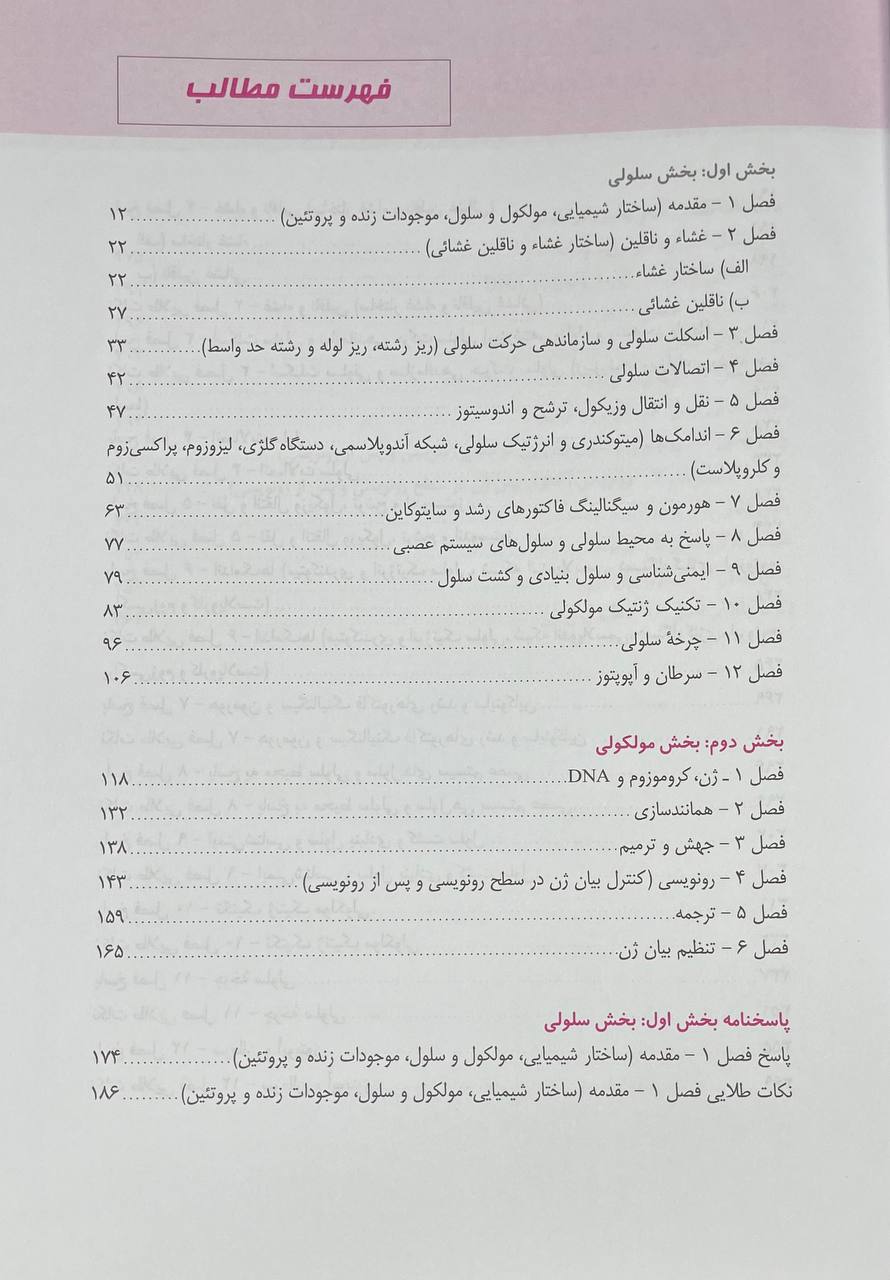 فهرست مطالب
بخش اول: بخش سلولی
فصل ۱ - مقدمه (ساختار شیمیایی، مولکول و سلول، موجودات زنده و پروتئین) ........................ ۱۲
فصل ۲ - غشاء و ناقلین (ساختار غشاء و ناقلین غشائی) ........................ ۲۲
الف) ساختار غشاء ........................ ۲۲
ب) ناقلین غشائی ........................ ۲۷
فصل ۳ - اسکلت سلولی و سازماندهی حرکت سلولی (ریز رشته، ریز لوله و رشته حد واسط) ............ ۳۳
فصل ۴ - اتصالات سلولی ........................ ۴۲
فصل ۵ - نقل و انتقال وزیکول، ترشح و اندوسیتوز ........................ ۴۷
فصل ۶ - اندامک‌ها (میتوکندری و انرژتیک سلولی، شبکه آندوپلاسمی، دستگاه گلژی، لیزوزوم، پراکسی‌زوم
و کلروپلاست) ........................ ۵۱
فصل ۷ - هورمون و سیگنالینگ فاکتورهای رشد و سایتوکاین ........................ ۶۳
فصل ۸ - پاسخ به محیط سلولی و سلول‌های سیستم عصبی ........................ ۷۷
فصل ۹ - ایمنی‌شناسی و سلول بنیادی و کشت سلول ........................ ۷۹
فصل ۱۰ - تکنیک ژنتیک مولکولی ........................ ۸۳
فصل ۱۱ - چرخهٔ سلولی ........................ ۹۶
فصل ۱۲ - سرطان و آپوپتوز ........................ ۱۰۶
بخش دوم: بخش مولکولی
فصل ۱ - ژن، کروموزوم و DNA ........................ ۱۱۸
فصل ۲ - همانندسازی ........................ ۱۳۲
فصل ۳ - جهش و ترمیم ........................ ۱۳۸
فصل ۴ - رونویسی (کنترل بیان ژن در سطح رونویسی و پس از رونویسی) ........................ ۱۴۳
فصل ۵ - ترجمه ........................ ۱۵۹
فصل ۶ - تنظیم بیان ژن ........................ ۱۶۵
پاسخنامه بخش اول: بخش سلولی
پاسخ فصل ۱ - مقدمه (ساختار شیمیایی، مولکول و سلول، موجودات زنده و پروتئین) ................ ۱۷۴
نکات طلایی فصل ۱ - مقدمه (ساختار شیمیایی، مولکول و سلول، موجودات زنده و پروتئین) ......... ۱۸۶